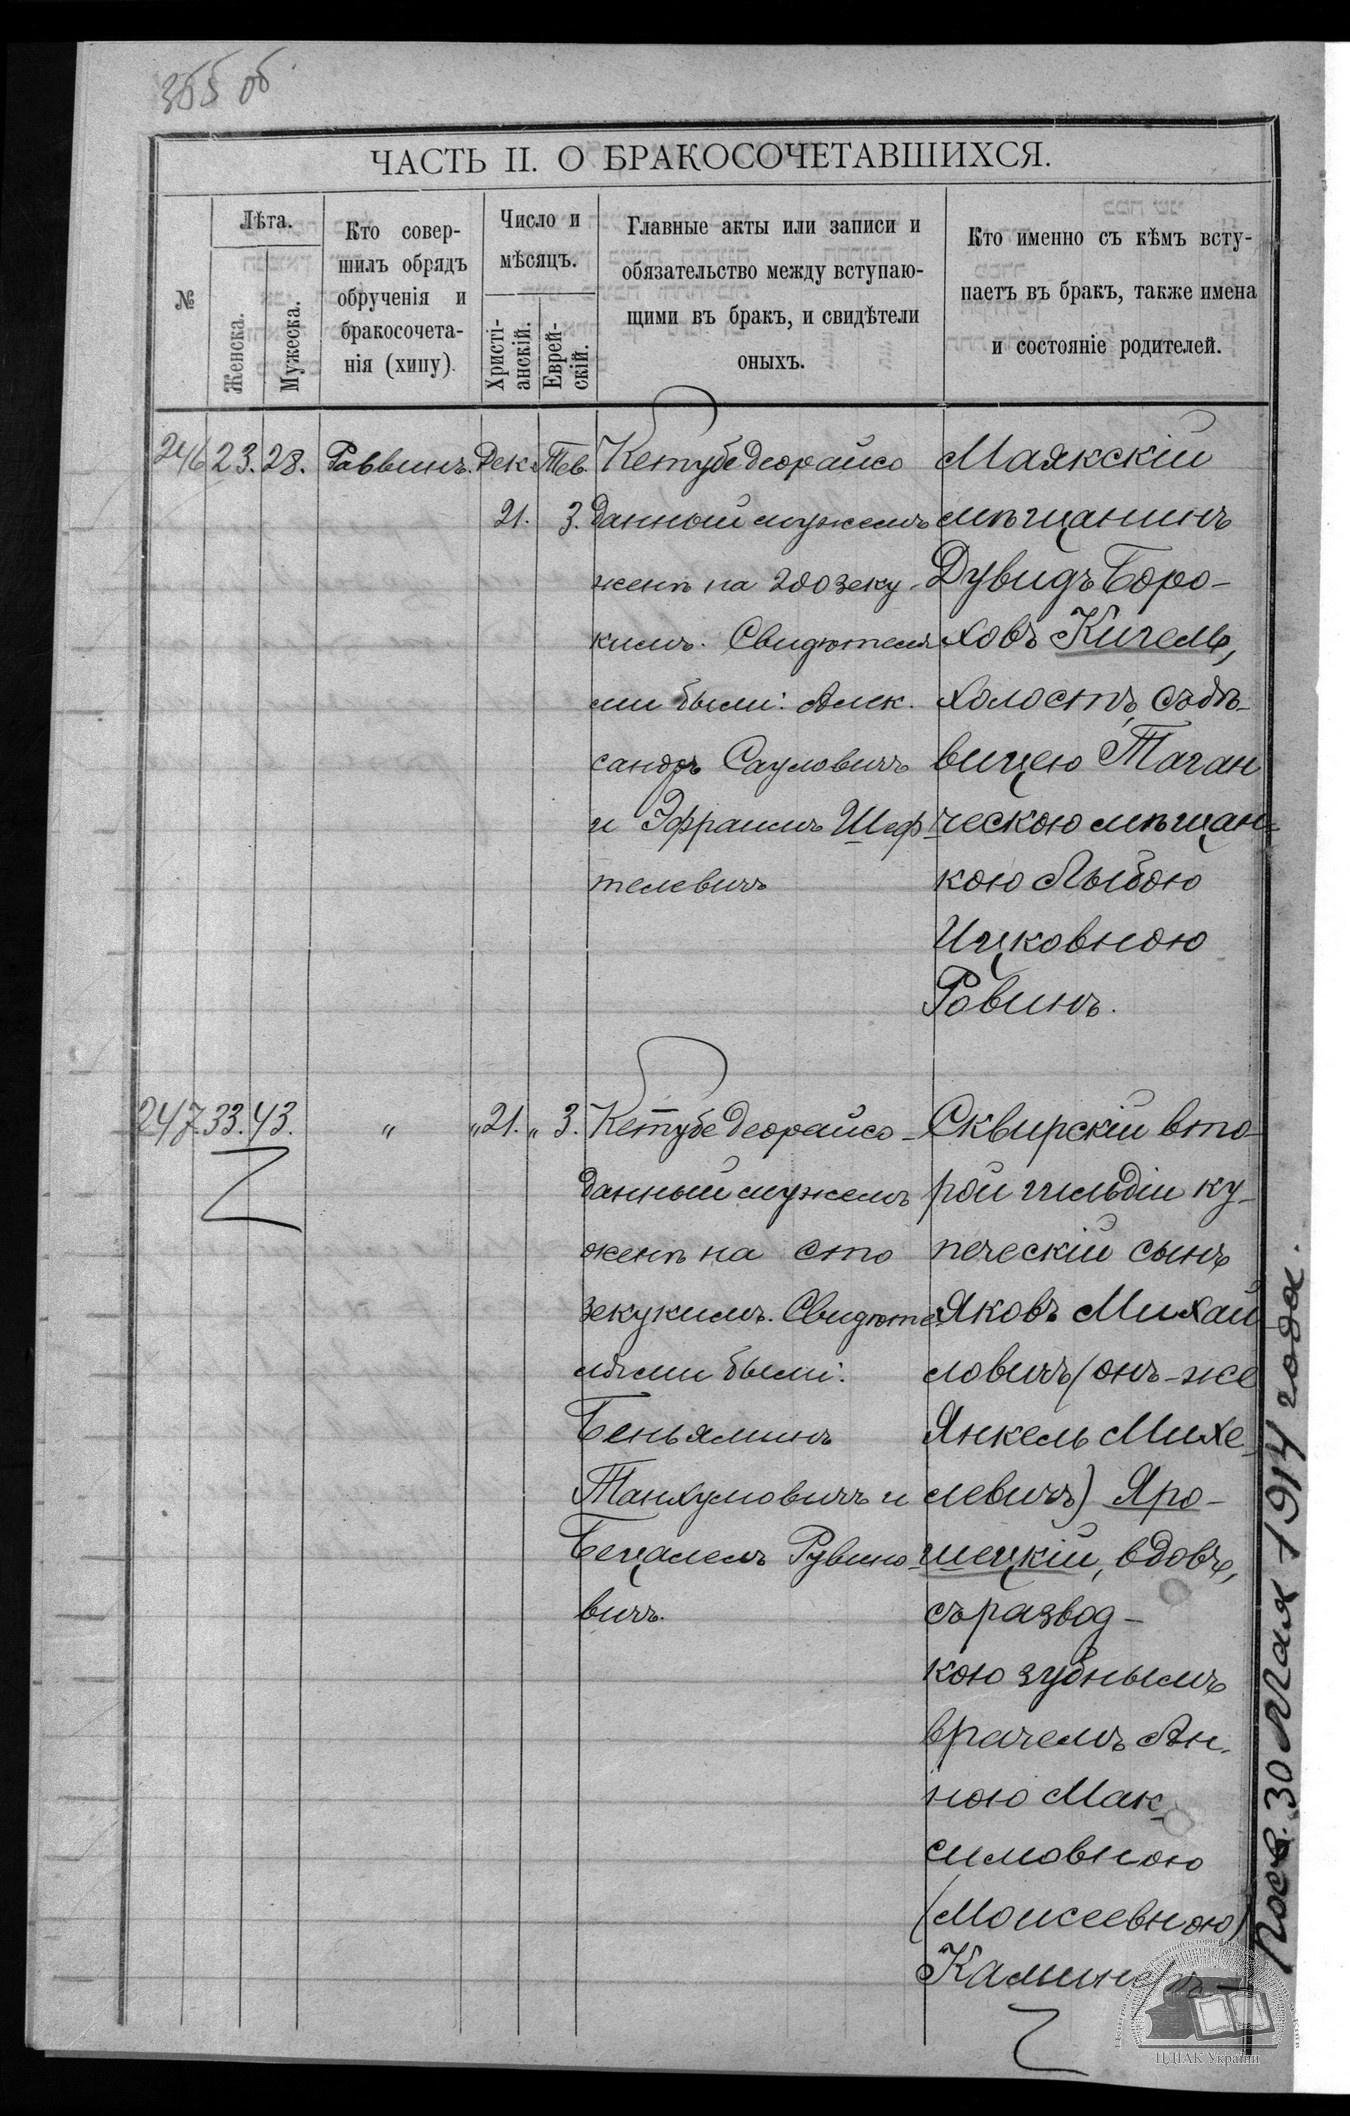 355 об
ЧАСТЬ II. О БРАКОСОЧЕТАВШИХСЯ.
№
Лѣта.
Женска.
Мужеска.
Кто совер-
шилъ обрядъ
обрученія и
бракосочета-
нія (хипу).
Число и
мѣсяцъ.
Христі-
анскій.
Еврей-
скій.
Главные акты или записи и
обязательство между вступаю-
щими въ бракъ, и свидѣтели
оныхъ.
Кто именно съ кѣмъ всту-
паетъ въ бракъ, также имена
и состояніе родителей.
246 23. 28. Раввинъ. Дек. Тев.
21. 3.
Кетубе деорайсо
данный мужемъ
женѣ на 200 зеку-
кимъ. Свидѣтеля
ми были: Алек.
сандръ Сауловичъ
и Эфраимъ Шеф
телевичъ
Маякскій
мѣщанинъ
Дувидъ Боро-
ховъ Кигель,
холостъ, съ дѣ-
вицею Таган
ческою мѣщан-
кою Лыбою
Ицковною
Равинъ.
247. 33. 43. " " 21. " 3.
Кетубе деорайсо-
данный мужемъ
женѣ на сто
зекукимъ. Свидѣте
лями были:
Беньяминъ
Танхумовичъ и
Бецалелъ Рувино-
вичъ.
Сквирскій вто-
рой гильдіи ку-
печескій сынъ
Яковъ Михай
ловичъ (онъ-же
Янкель Михе-
левичъ) Яро-
шецкій, вдовъ,
съ развод-
кою зубнымъ
врачемъ Ан.
ною Мак-
симовною
(Моисеевною)
Каминеръ-
Посв. 30 Мая 1914 года.
ЦДІАК України